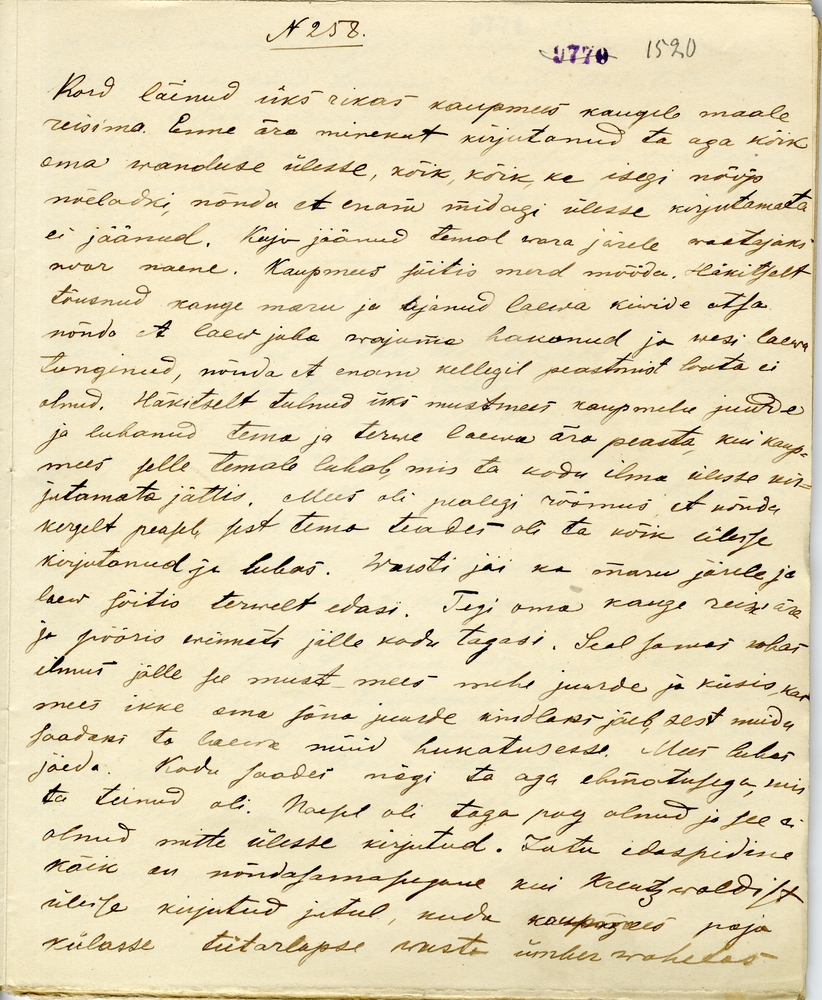 N 258.
9770 1520
Kord läinud üks rikas kaupmees kaugele maale
reisima. Enne ära minekut kirjutanud ta aga kõik
oma wanduse ülesse, kõik, kõik, ke isegi nööp
nõeladki, nõnda et enam midagi ülesse kirjutamata
ei jäänud. Koju jäänud temal wara järele waatajaks
noor naene. Kaupmees sõitis merd mööda. Häkitselt
tõusnud kange maru ja ajanud laewa kiwide otsa
nõnda et laew juba wajuma hakanud ja wesi laewa
tunginud, nõnda et enam kellegil peastmist loota ei
olnud. Häkitselt tulnud üks mustmees kaupmehe juurde
ja lubanud tema ja terwe laewa ära peasta, kui kaup=
mees selle temale lubab, mis ta kodu ilma ülesse kir=
jutamata jättis. Mees oli pealegi rõõmus, et nõnda
kergelt peaseb, sest tema teades oli ta kõik ülesse
kirjutanud ja lubas. Warsti jäi ka maru järele ja
laew sõitis terwelt edasi. Tegi oma kauge reisi ära
ja pööris wiimati jälle kodu tagasi. Seal samas kohas
ilmus jälle see must mees mehe juurde ja küsis, kas
mees ikke oma sõna juurde kindlaks jäeb, sest muidu
saadaks ta laewa nüüd hukatusesse. Mees lubas
jäeda. Kodu saades nägi ta aga ehmatusega, mis
ta teinud oli. Naesel oli taga poeg olnud ja see ei
olnud mitte ülesse kirjutud. Jutu edaspidine
käik on nõndasamasugune kui Kreutzwaldist
ülesse kirjutud jutul, kuda kaupmees poja
külasse tütarlapse wasta ümber wahetas